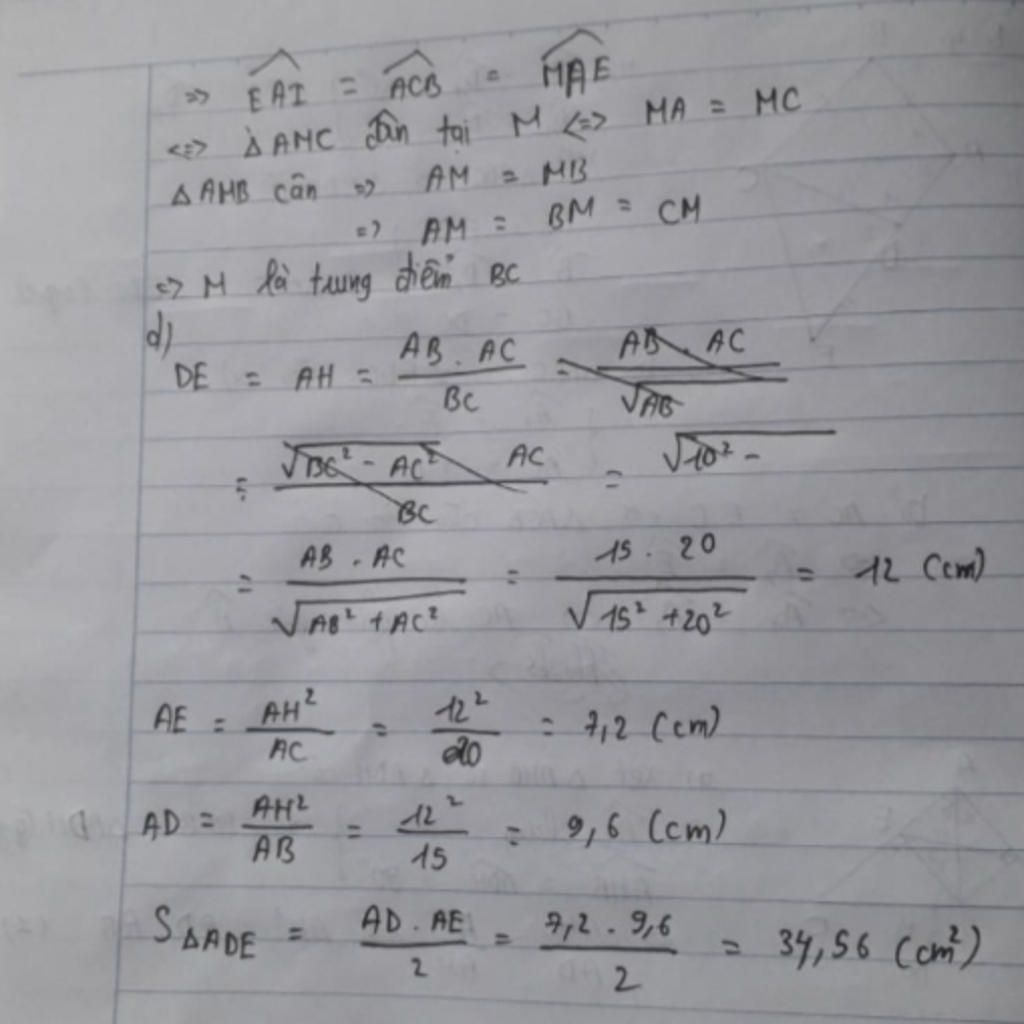 => EAI = ACB = MAE
<=> ΔAMC cân tại M <=> MA = MC
ΔAMB cân => AM = MB
=> AM = BM = CM
=> M là trung điểm BC
d)
DE = AH = AB . AC / BC = AB . AC / √AB
= √BC² - AC² AC / BC = √10² -
= AB . AC / √AB² + AC² = 15 . 20 / √15² + 20² = 12 (cm)
AE = AH² / AC = 12² / 20 = 7,2 (cm)
AD = AH² / AB = 12² / 15 = 9,6 (cm)
SΔADE = AD . AE / 2 = 7,2 . 9,6 / 2 = 34,56 (cm²)